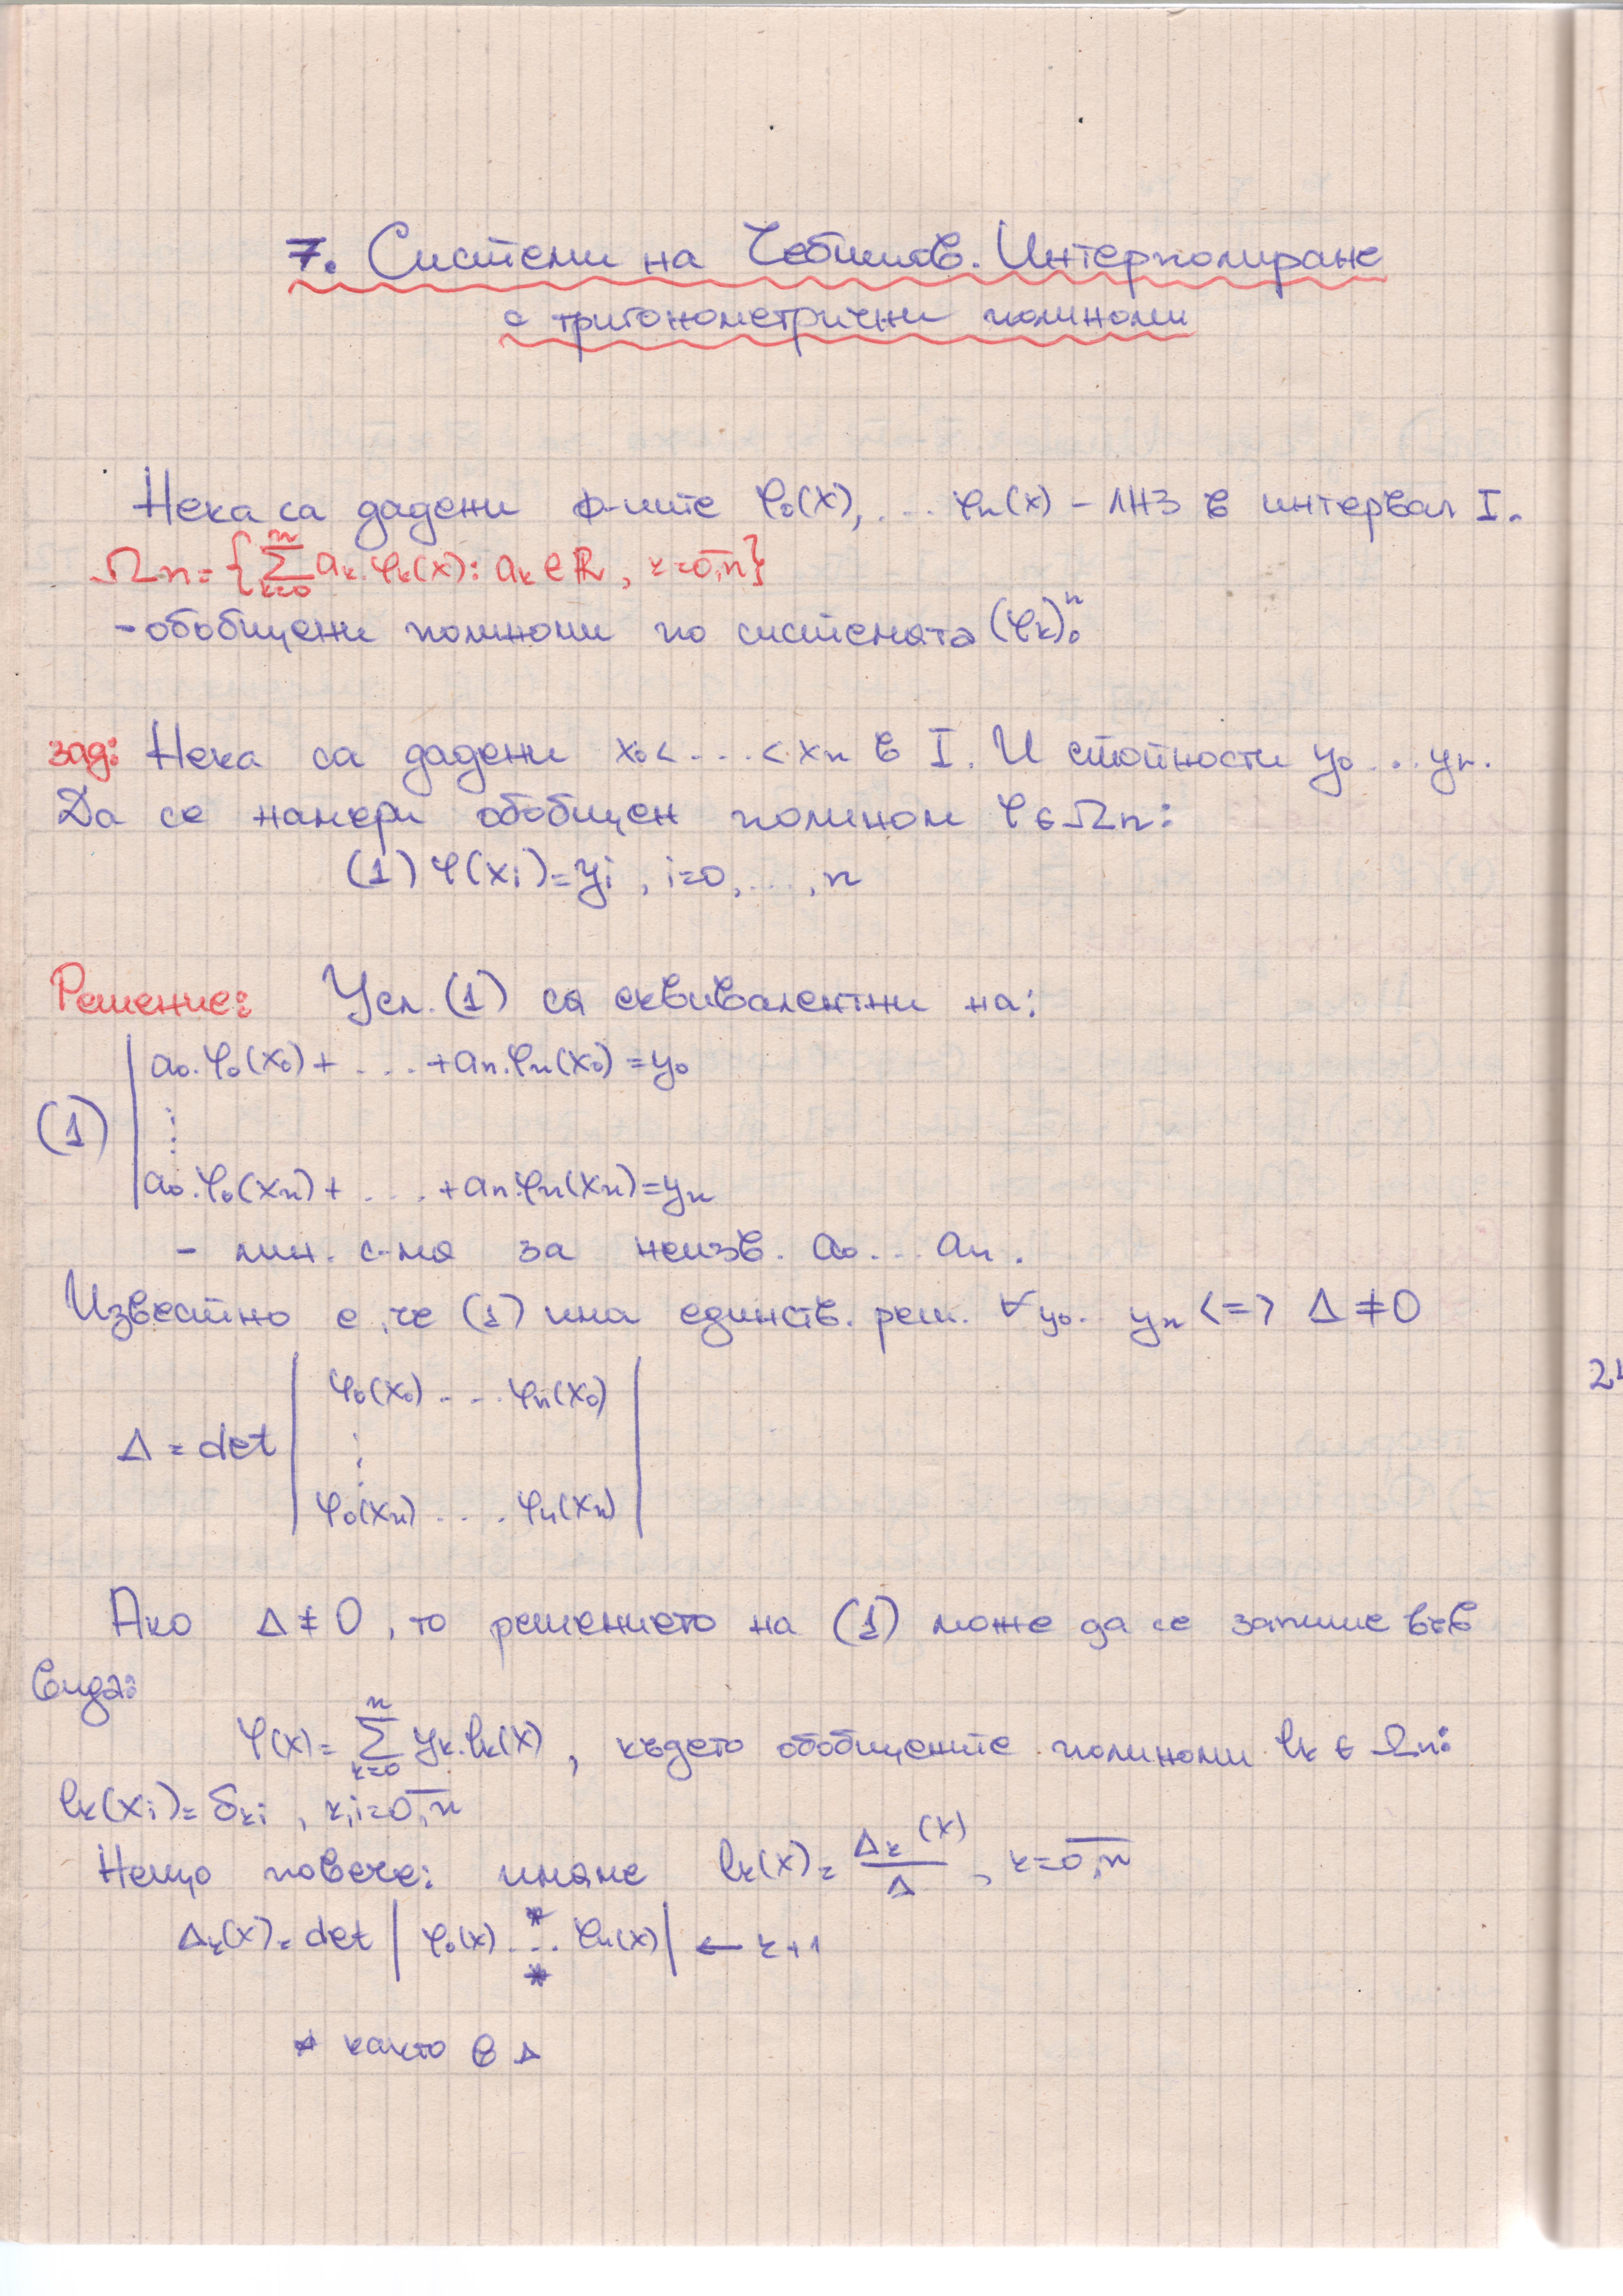 7. Системи на Чебишов. Интерполиране
с тригонометрични полиноми
Нека са дадени ф-ците φ₀(x), ... φₙ(x) - ЛНЗ в интервал I.
Ωₙ = {∑ₖ₌₀ⁿ aₖ.φₖ(x): aₖ ∈ ℝ, k=0,n̅}
- обобщени полиноми по системата (φₖ)₀ⁿ
зад: Нека са дадени x₀< ... <xₙ в I. И стойности y₀...yₙ.
Да се намери обобщен полином φ ∈ Ωₙ:
(1) φ(xᵢ)=yᵢ, i=0, ..., n
Решение: Усл. (1) са еквивалентни на:
a₀.φ₀(x₀)+ .... +aₙ.φₙ(x₀)=y₀
(1) ⋮
a₀.φ₀(xₙ)+ .... +aₙ.φₙ(xₙ)=yₙ
- лин. с-ма за неизв. a₀...aₙ.
Известно е, че (1) има единств. реш. ∀y₀.. yₙ <=> Δ ≠ 0
φ₀(x₀) .... φₙ(x₀)
Δ = det ⋮
φ₀(xₙ) .... φₙ(xₙ)
Ако Δ ≠ 0, то решението на (1) може да се запише във
вида:
φ(x)= ∑ₖ₌₀ⁿ yₖ.lₖ(x), където обобщените полиноми lₖ ∈ Ωₙ:
lₖ(xᵢ)=δₖᵢ, k,i=0,n̅
Нещо повече: имаме lₖ(x)= Δₖ(x)/Δ, k=0,n̅
Δₖ(x)= det | φ₀(x) *...* φₙ(x) | ← k+1
* както в Δ
24